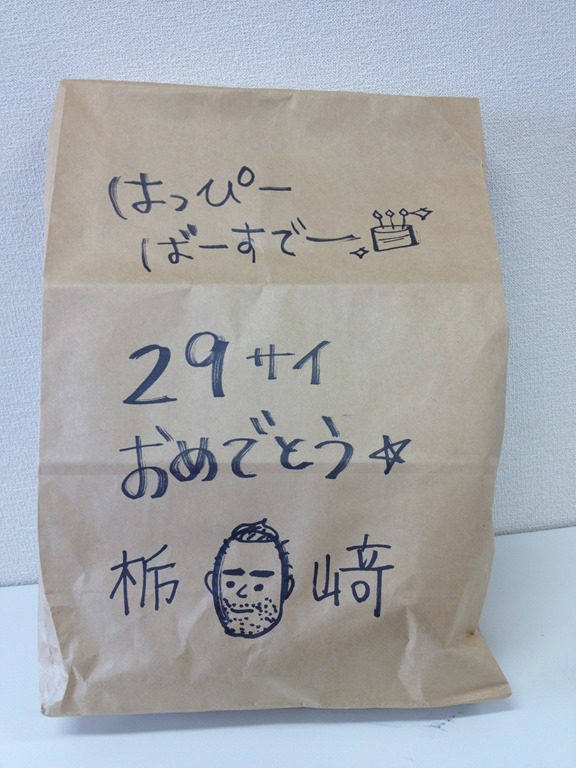 はっぴー
ばーすでー
29サイ
おめでとう☆
栃 﨑